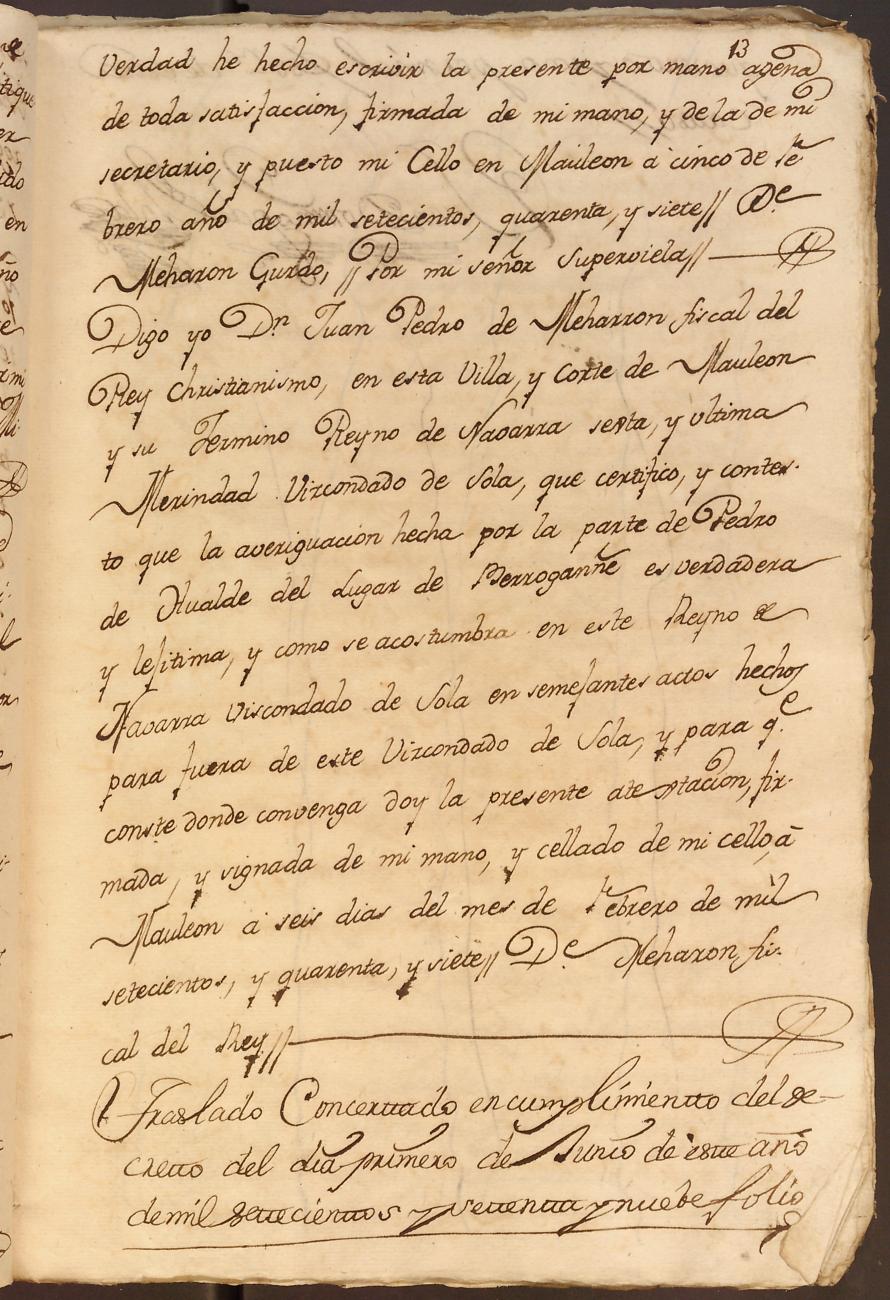 13
Verdad he hecho escrivir la presente por mano agena
de toda satisfaccion, firmada de mi mano, y de la de mi
secretario, y puesto mi Cello en Mauleon a cinco de fe
brero año de mil setecientos, quarenta, y siete // De
Meharon Gurdo, // Por mi señor Superviela //
Digo yo Dn Juan Pedro de Meharron fiscal del
Rey Christianismo, en esta Villa, y Corte de Mauleon
y su Termino Reyno de Navarra sexta, y ultima
Merindad Vizcondado de Sola, que certifico, y contes-
to que la averiguacion hecha por la parte de Pedro
de Alualde del Lugar de Berrogañe es verdadera
y lejitima, y como se acostumbra en este Reyno de
Navarra Viscondado de Sola en semejantes actos hechos
para fuera de este Vizcondado de Sola, y para qe
conste donde convenga doy la presente atestacion, fir-
mada, y signada de mi mano, y cellado de mi cello, à
Mauleon a seis dias del mes de febrero de mil
setecientos, y quarenta, y siete // De Meharon fis-
cal del Rey //
Traslado Concertado en cumplimientto del de-
cretto del dia primero de Junio de este año
de mil settecienttos y settentta y nuebe folio